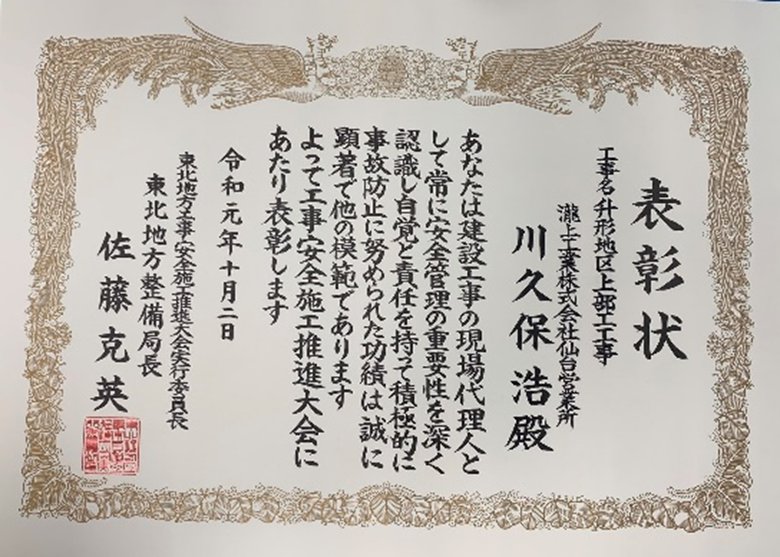 表彰状
工事名 升形地区上部工工事
瀧上工業株式会社仙台営業所
川久保浩殿
あなたは建設工事の現場代理人と
して常に安全管理の重要性を深く
認識し自覚と責任を持って積極的に
事故防止に努められた功績は誠に
顕著で他の模範であります
よって工事安全施工推進大会に
あたり表彰します
令和元年十月二日
東北地方工事安全施工推進大会実行委員長
東北地方整備局長
佐藤克英